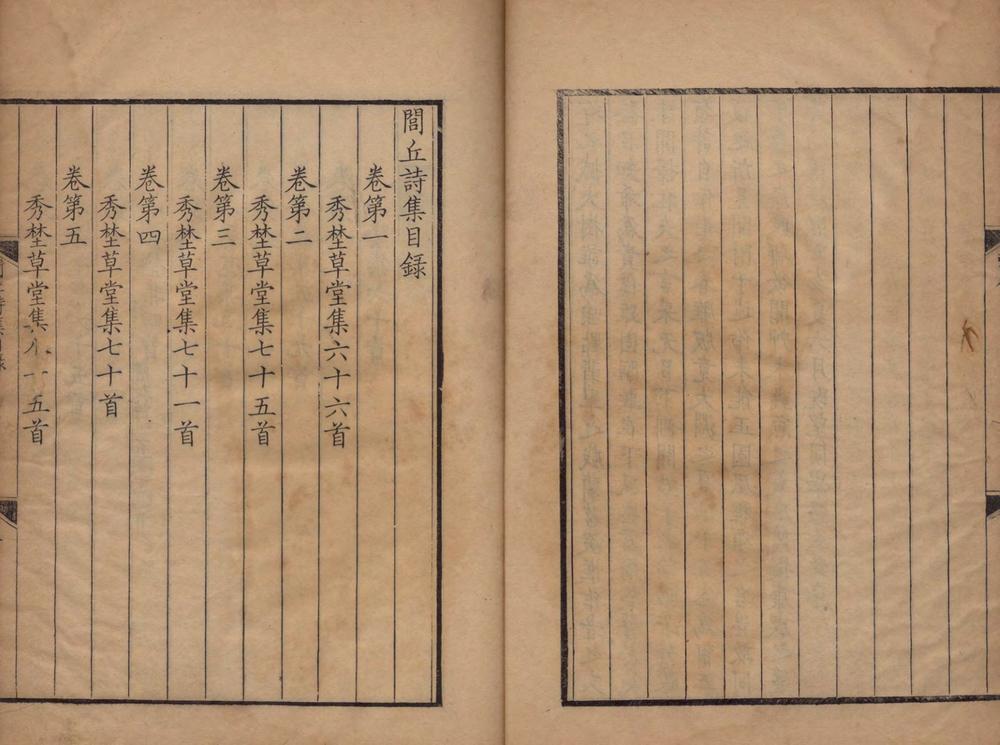 閭丘詩集目録
卷第一
秀埜草堂集六十六首
卷第二
秀埜草堂集七十五首
卷第三
秀埜草堂集七十一首
卷第四
秀埜草堂集七十首
卷第五
秀埜草堂集十五首
詩集目録